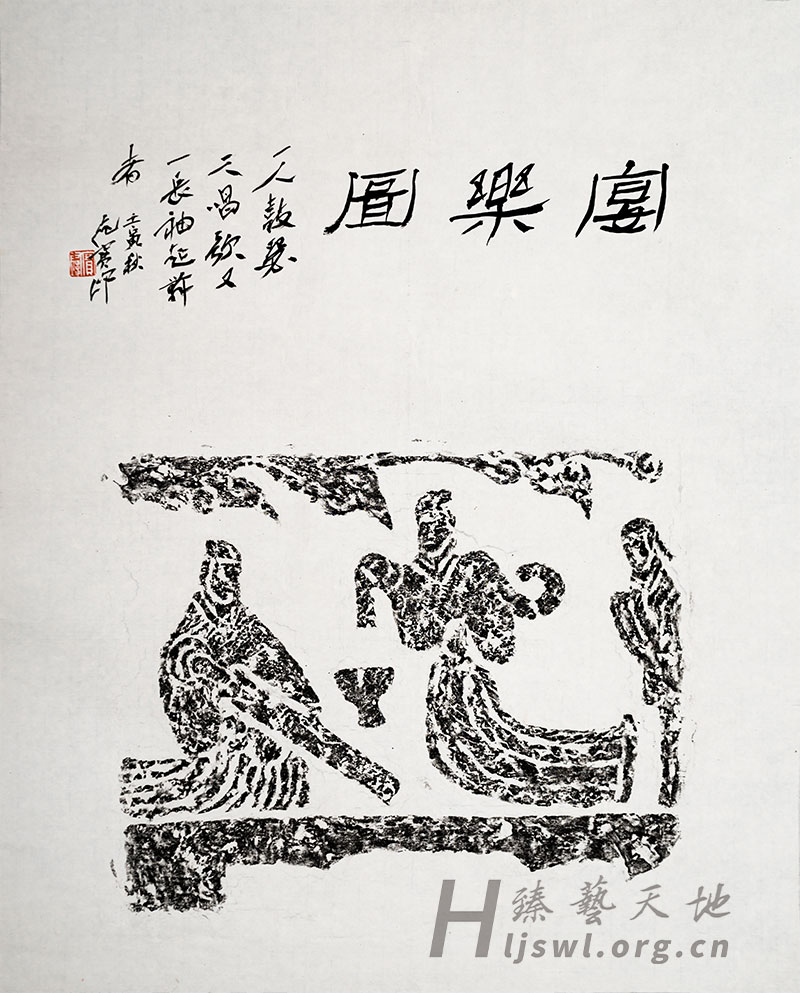 宴樂圖
一人鼓瑟
唱歌又
一長袖起舞
者
壬寅秋
臻藝天地
Hljswl.org.cn